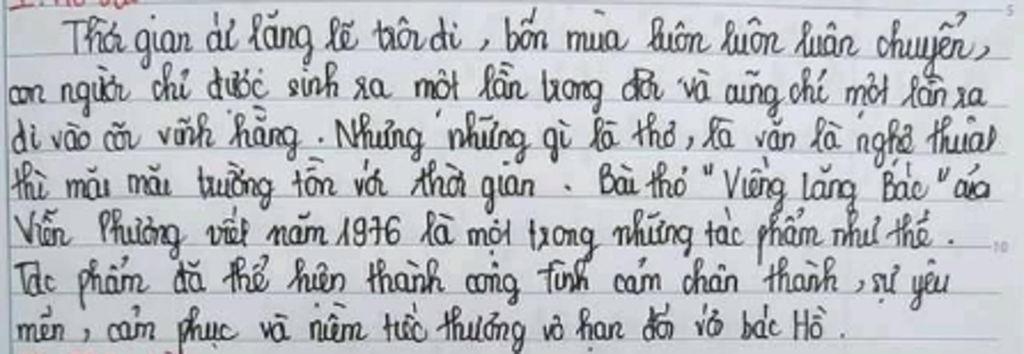 Thời gian cứ lặng lẽ trôi đi, bốn mùa luôn luôn luân chuyển,
con người chỉ được sinh ra một lần trong đời và cũng chỉ một lần ra
đi vào cõi vĩnh hằng. Nhưng những gì là thơ, là văn là nghệ thuật
thì mãi mãi trường tồn với thời gian. Bài thơ "Viếng lăng Bác" của
Viễn Phương viết năm 1976 là một trong những tác phẩm như thế.
Tác phẩm đã thể hiện thành công tình cảm chân thành, sự yêu
mến, cảm phục và niềm tiếc thương vô hạn đối với bác Hồ.